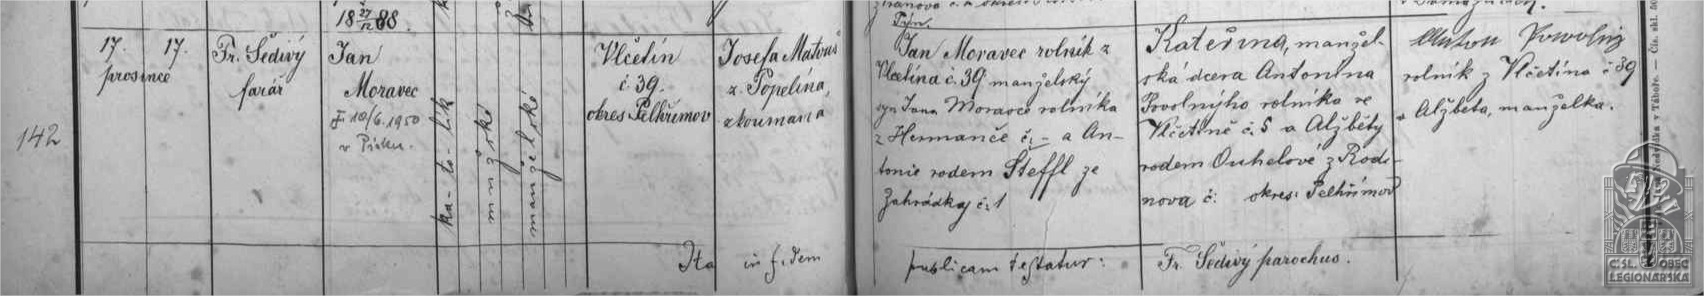 18 27/12 88.
142
17. 17.
prosince
Fr. Šedivý
farář
Jan
Moravec
† 10/6. 1950
v Písku.
ka-to-lík
mužské
manželské
Vlčetín
č 39.
okres Pelhřimov
Josefa Matouš
z Popelína,
zkoumána
Týn.
Jan Moravec rolník z
Vlčetína č. 39 manželský
syn Jana Moravce rolníka
z Heřmanče č. – a An-
tonie rodem Šteffl ze
Zahrádky č. 1
Kateřina, manžel-
ská dcera Antonína
Povolnýho rolníka ve
Vlčetíně č. 5 a Alžběty
rodem Ouhelové z Rodi-
nova č. okres: Pelhřimov
Anton Powolny
rolník z Vlčetína č 39
a Alžběta, manželka.
Ita in fidem
publicam testatur:
Fr. Šedivý parochus.
v Táboře. — Čís. skl.
ČSL. OBEC
LEGIONÁŘSKÁ